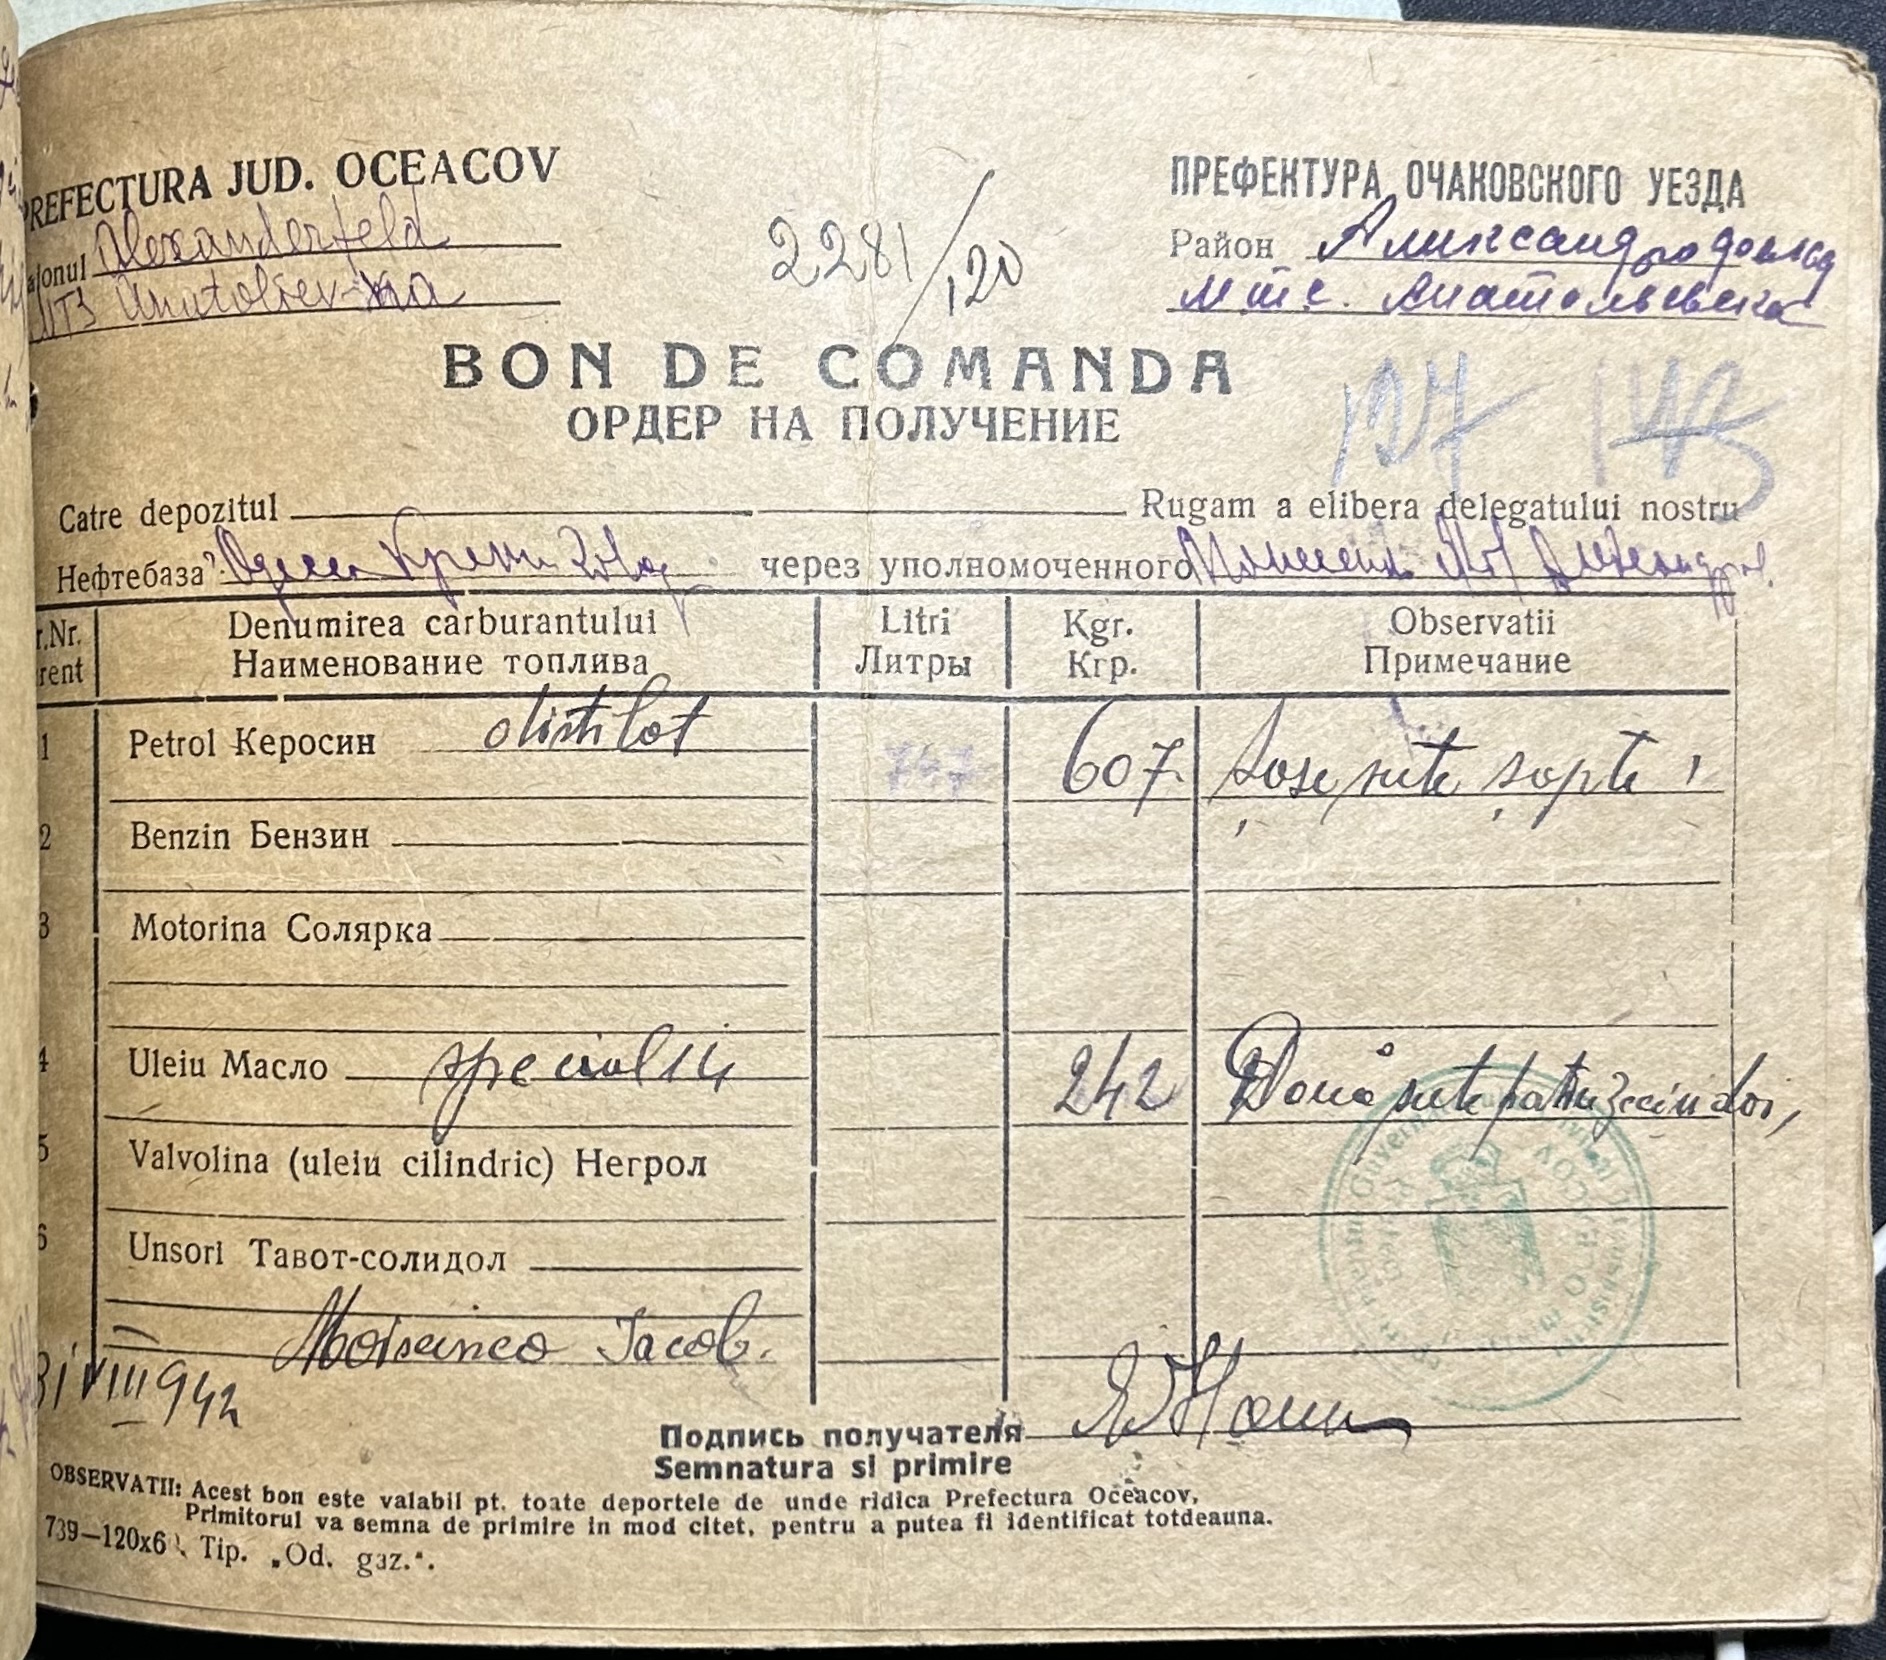 PREFECTURA JUD. OCEACOV
ПРЕФЕКТУРА ОЧАКОВСКОГО УЕЗДА
ajonul Alexanderfeld
2281/120
Район Александрофельд
MT3 Anatoliev-ka
М.т.с. Анатольевка
BON DE COMANDA
ОРДЕР НА ПОЛУЧЕНИЕ
127 143
Catre depozitul Rugam a elibera delegatului nostru
Нефтебаза Одесса через уполномоченного
r.Nr. Denumirea carburantului Litri Kgr. Observatii
rent Наименование топлива Литры Кгр. Примечание
1 Petrol Керосин distilat 747 607. Șase sute șapte
2 Benzin Бензин
3 Motorina Солярка
4 Uleiu Масло special 14 242 Două sute patruzeci și doi,
5 Valvolina (uleiu cilindric) Негрол
6 Unsori Тавот-солидол
Moiseinco Iacob.
31 VIII 942
Подпись получателя
Semnatura si primire
OBSERVATII: Acest bon este valabil pt. toate deportele de unde ridica Prefectura Oceacov,
Primitorul va semna de primire in mod citet, pentru a putea fi identificat totdeauna.
739—120x6 Tip. „Od. gaz.".